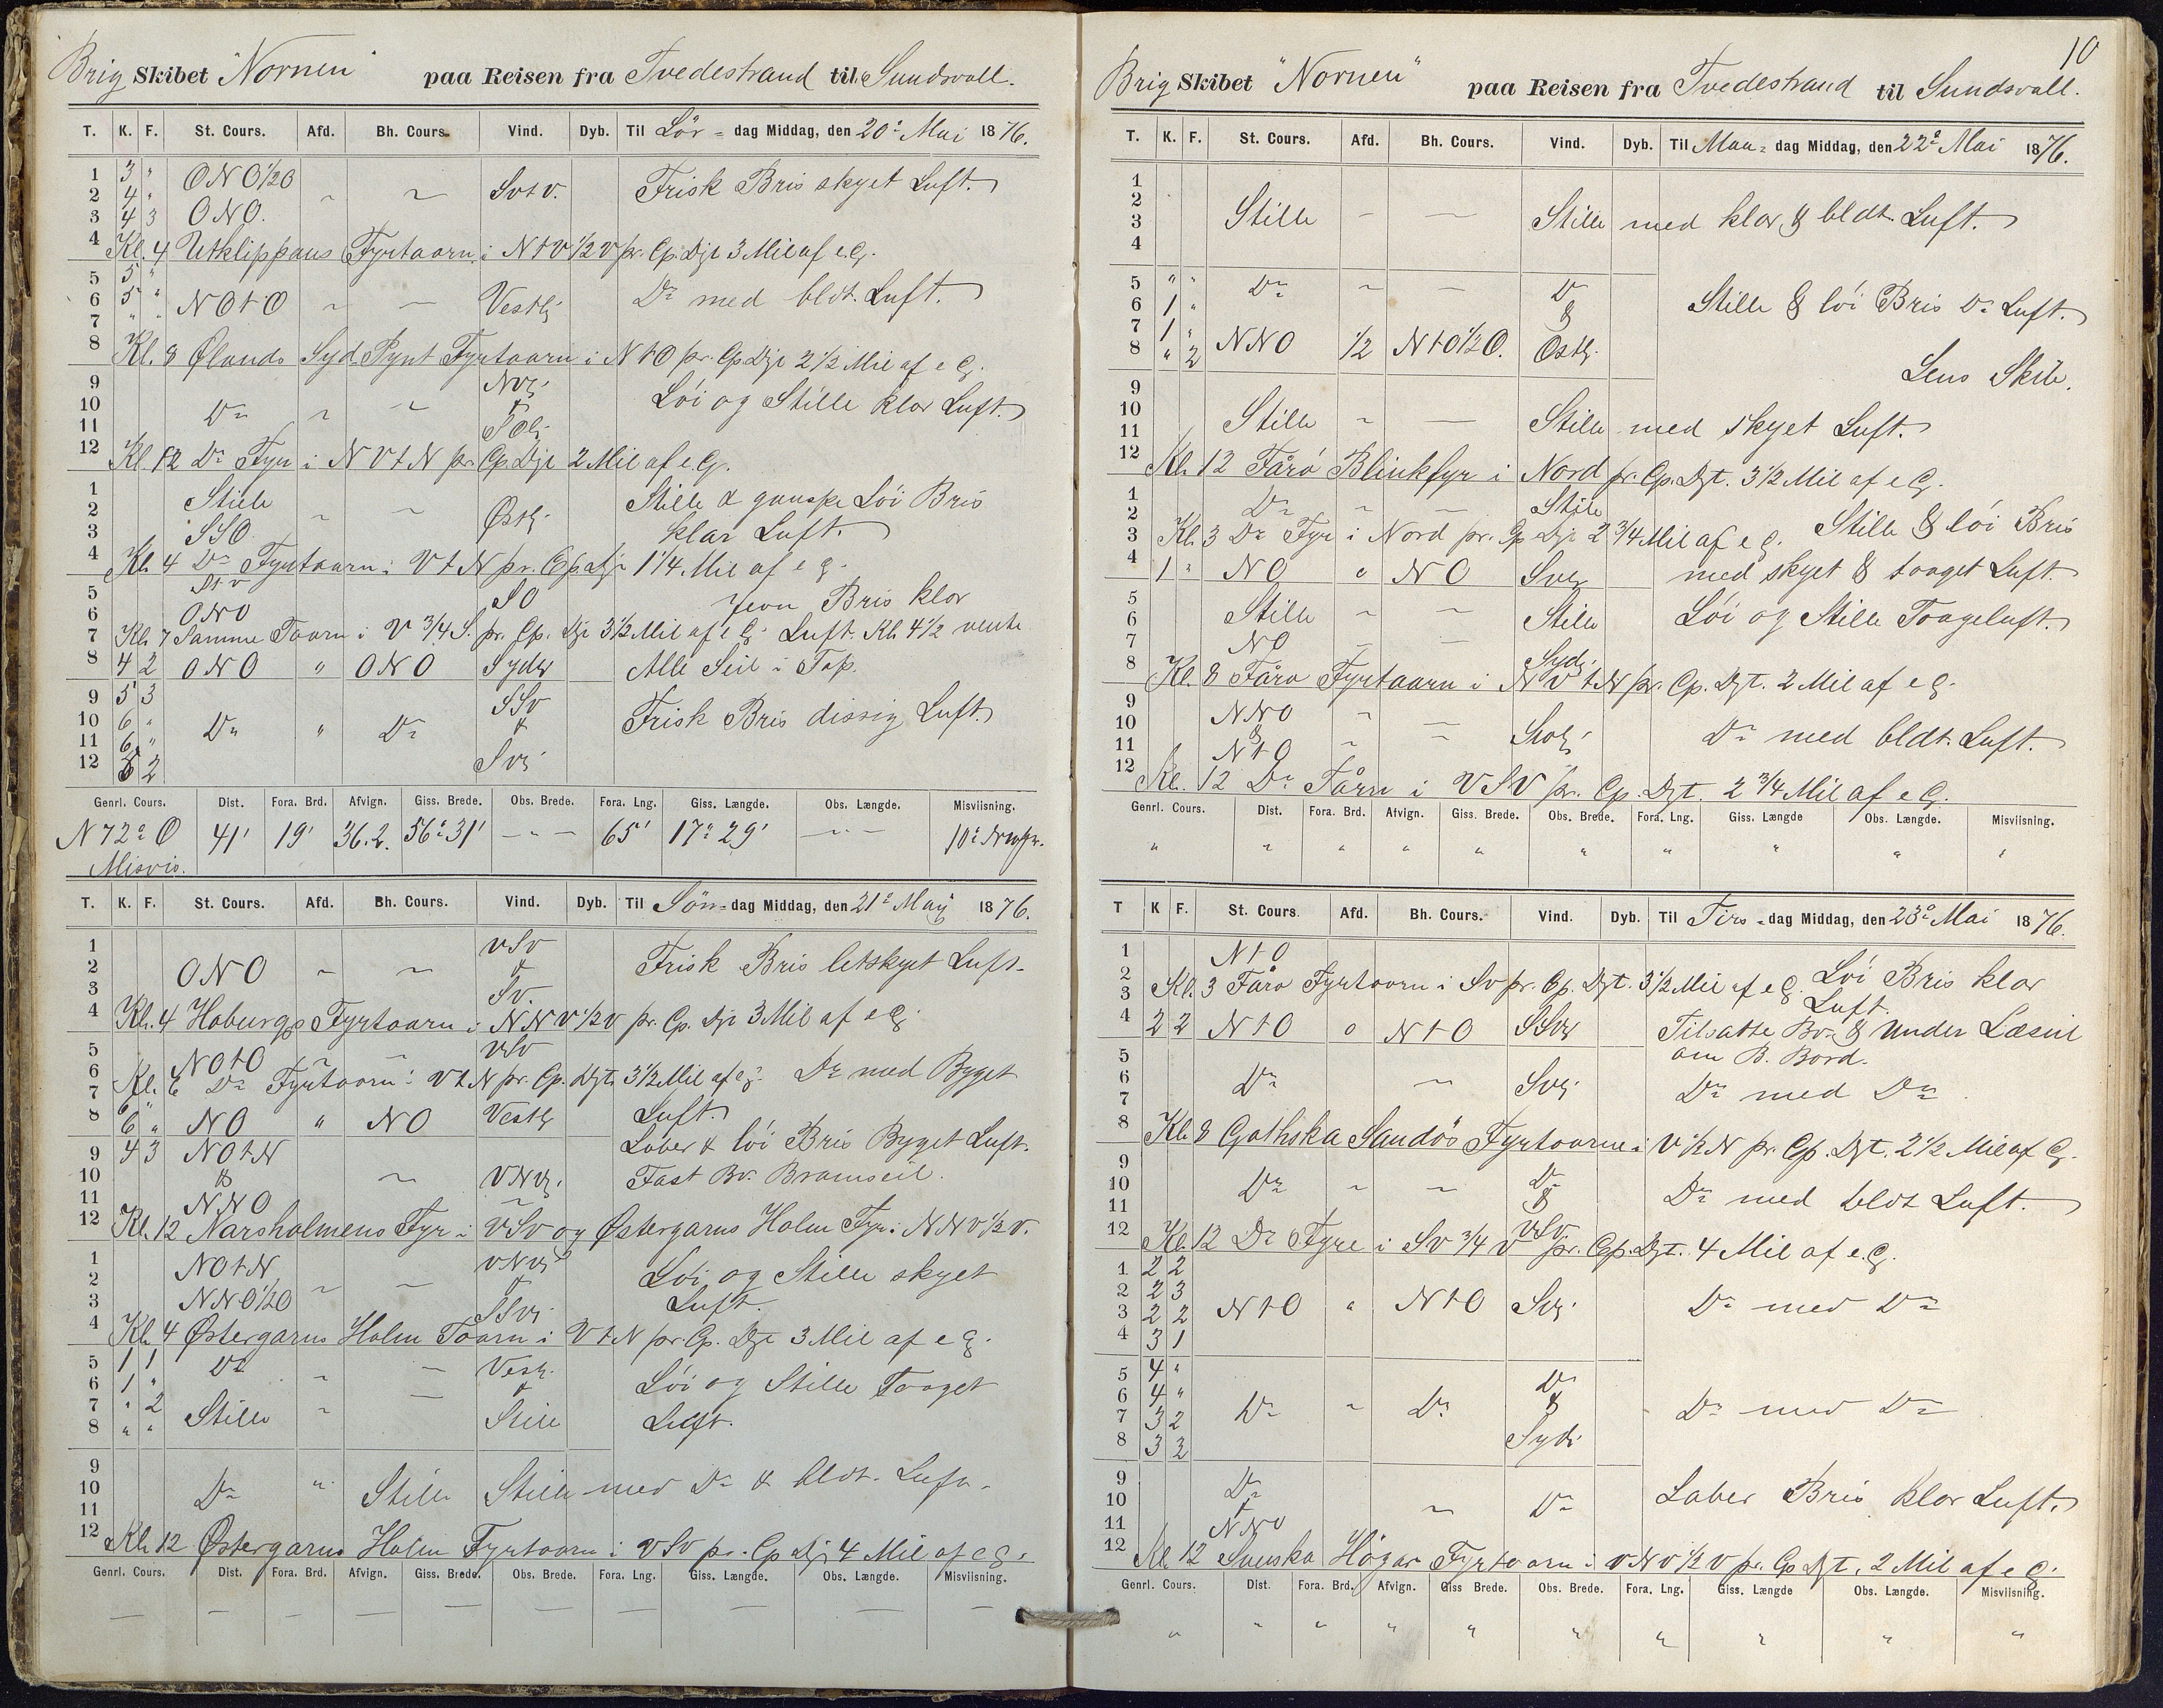 Brig Skibet "Nornen" paa Reisen fra Tvedestrand til Sundsvall.
T. K. F. St. Cours. Afd. Bh. Cours. Vind. Dyb. Til Lör- dag Middag, den 20de Mai 1876.
1 3 " ONO½O
2 4 " ~ ~ SvtV. Frisk Bris skyet Luft.
3 4 3 ONO.
4 Kl. 4 Utklippans Fyrtaarn i NtV½V pr. Cp. Djt 3 Mil af e.G.
5 5 "
6 5 " NOtO ~ ~ Vestlg Do med bldt. Luft.
7 " "
8 Kl. 8 Ølands Syd Pynt Fyrtaarn i NtO pr. Cp Djt 2½ Mil af e G.
9 NVlg
10 Do ~ ~ & Löi og Stille klar Luft.
11 SOlg
12 Kl. 12 Do Fyr i NVtN pr. Cp Djt 2 Mil af e.G.
1 Stille Stille & ganske Löi Bris
2 ~ ~ Østlg.
3 SSO klar Luft.
4 Kl. 4 Do Fyrtaarn i VtN pr. Cp. Djt 1¼ Mil af e G.
5 SO Jevn Bris klar
6 ONO
7 Kl. 7 Samme Taarn i V¾S. pr. Cp. Djt 3½ Mil af e G. Luft. Kl. 4½ vente
8 4 2 ONO " ONO Sydlg Alle Seil i Top.
9 5 3 SSv
10 6 " Do " Do & Frisk Bris dissig Luft.
11 6 "
12 5 2 Svlg
Genrl. Cours. Dist. Fora. Brd. Afvign. Giss. Brede. Obs. Brede. Fora. Lng. Giss. Længde. Obs. Længde. Misviisning.
N 72° O 41' 19' 36.2. 56° 31' — " — 65' 17° 29' — " — 10° Nvpr.
Misvis.
T. K. F. St. Cours. Afd. Bh. Cours. Vind. Dyb. Til Sön- dag Middag, den 21de Maij 1876.
1 vSv
2 ONO ~ ~ & Frisk Bris letskyet Luft.
3 Sv.
4 Kl. 4 Hoburgs Fyrtaarn i NNV½V pr. Cp. Djt 3 Mil af e G.
5 NOtO ~ ~ vSv
6 Kl. 6 Do Fyrtaarn i VtN pr. Cp. Djt. 3½ Mil af e G. Do med Byget
7 6 "
8 6 " NO " NO Vestlg Luft.
9 4 3 NOtN Laber & löi Bris Byget Luft.
10 & ~ VNVlg. Fast Bv. Bramseil.
11 NNO
12 Kl. 12 Narsholmens Fyr i VSV og Østergarns Holm Fyr i NNV½V.
1 NOtN VNVlg Löi og Stille skyet
2 ~ ~ &
3 NNO½O SSvlg Luft.
4 Kl. 4 Østergarns Holm Taarn i VtN pr. Cp. Djt 3 Mil af e G.
5 1 1 Do ~ Vestlg.
6 1 " ~ ~ & Löi og Stille Taaget
7 " 2 Stille ~ Stille Luft.
8 " "
9
10 Do " Stille Stille med Do & bldt. Luft.
11
12 Kl. 12 Østergarns Holm Fyrtaarn i VSV pr. Cp Djt 4 Mil af e G.
Genrl. Cours. Dist. Fora. Brd. Afvign. Giss. Brede. Obs. Brede. Fora. Lng. Giss. Længde. Obs. Længde. Misviisning.
— — — — — — — — — —
10
Brig Skibet "Nornen" paa Reisen fra Tvedestrand til Sundsvall.
T. K. F. St. Cours. Afd. Bh. Cours. Vind. Dyb. Til Man- dag Middag, den 22de Mai 1876.
1
2
3 Stille — — Stille med klar & bldt. Luft.
4
5 " " Do ~ — Do
6 1 " & Stille & löi Bris Do Luft.
7 1 "
8 " 2 NNO ½ NtO½O. Østlg. Lens Skib.
9
10 Stille ~ — Stille med skyet Luft.
11
12 Kl. 12 Fårö Blinkfyr i Nord pr. Cp. Djt. 3½ Mil af e G.
1 Do ~ ~ Stille
2
3 Kl. 3 Do Fyr i Nord pr. Cp Djt 2¾ Mil af e G. Stille & löi Bris
4 1 " NO " NO Svlg med skyet & taaget Luft.
5
6 Stille ~ ~ Stille Löi og Stille Taageluft.
7 NO ~ —
8 Sydlg. Kl. 8 Fårö Fyrtaarn i NVtN pr. Cp. Djt. 2 Mil af e G.
9 NNO ~ —
10 & ~ ~ Svlg. Do med bldt. Luft.
11 NtO
12 Kl. 12 Do Tårn i VSV pr. Cp. Djt. 2¾ Mil af e G.
Genrl. Cours. Dist. Fora. Brd. Afvign. Giss. Brede. Obs. Brede. Fora. Lng. Giss. Længde Obs. Længde. Misviisning.
" " " " " " " " " "
T K F. St. Cours. Afd. Bh. Cours. Vind. Dyb. Til Tirs- dag Middag, den 23de Mai 1876.
1 NtO
2 Löi Bris klar
3 Kl. 3 Fårö Fyrtaarn i Sv pr. Cp. Djt. 3½ Mil af e G. Luft.
4 2 2 NtO " NtO SSvlg Tilsatte Bv. & Under Læseil
5 om B. Bord.
6 Do ~ Svlg. Do med Do
7
8 Kl. 8 Gothska Sandös Fyrtaarne i V½N pr. Cp. Djt. 2½ Mil af G.
9 Do
10 Do ~ ~ & Do med bldt Luft.
11 VSv.
12 Kl. 12 Do Fyre i SV¾V pr. Cp. Djt. 4 Mil af e.G.
1 2 2
2 2 3 NtO " NtO Svlg. Do med Do
3 2 2
4 3 1
5 4 " Do
6 4 " Do ~ Do & Do med Do
7 3 2
8 3 3 Sydl.
9 Do
10 & ~ Do Laber Bris klar Luft.
11 NNO
12 Kl. 12 Svenska Högar Fyrtaarn i VNV½V pr. Cp Djt. 2 Mil af e G.
Genrl. Cours. Dist. Fora. Brd. Afvign. Giss Brede. Obs. Brede. Fora. Lng. Giss. Længde Obs. Længde. Misviisning.
" " " " " " " " " "